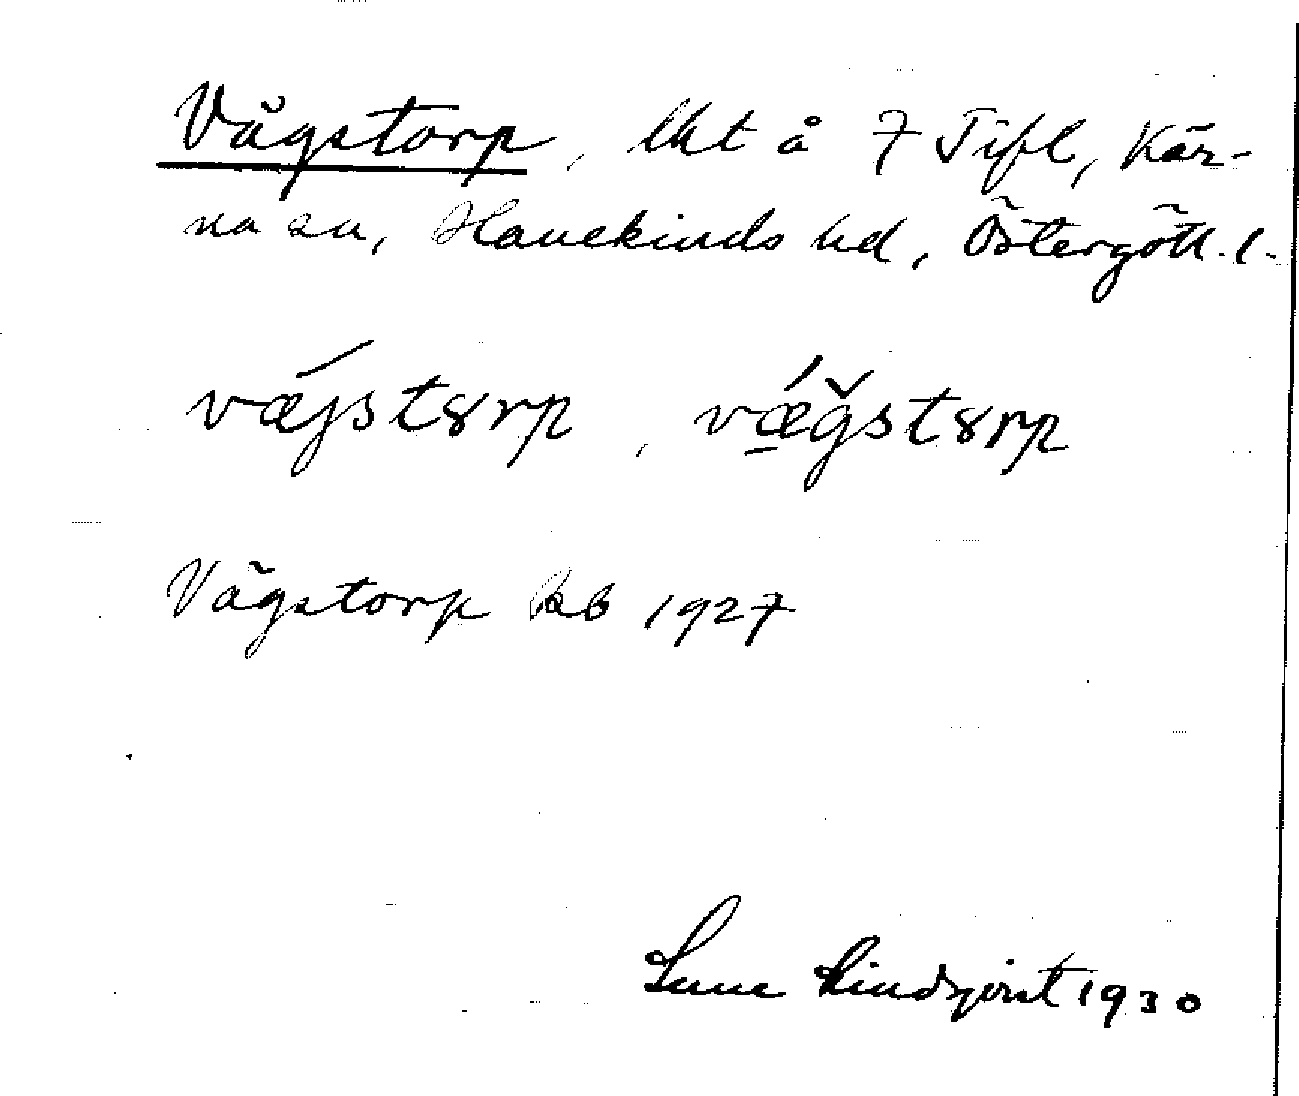 Vägstorp, lht å 7 Tifl, Kär-
na sn, Hanekinds hd, Östergötl. l.
vǽjstȣrp, vǽğstȣrp
Vägstorp kb 1927
Sune Lindqvist 1930